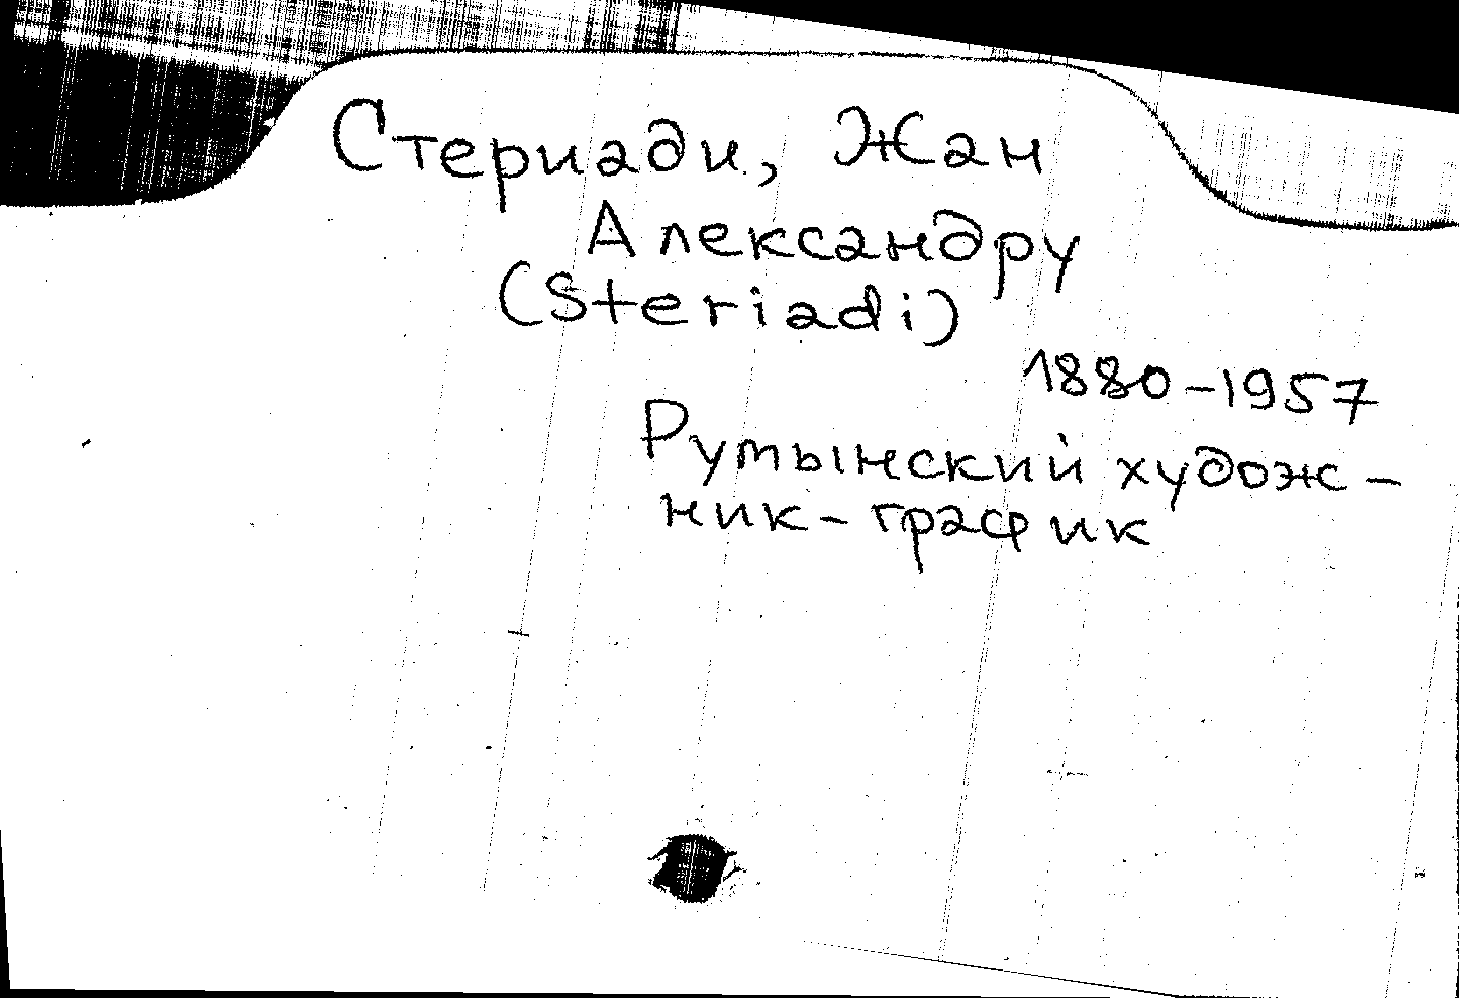 Стериади, Жан
Александру
(Steriadi)
1880-1957
Румынский худож-
ник-график